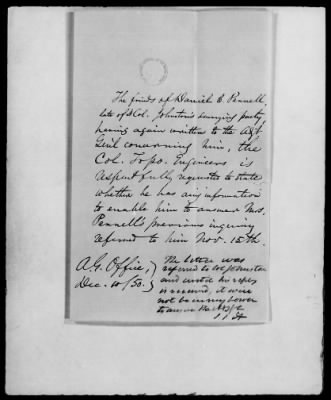 The friends of Daniel C. Pennell,
late of Lt Col. Johnston's surveying party,
having again written to the Adjt
Genl concerning him, the
Col. Topo. Engineers is
respectfully requested to state
whether he has any information
to enable him to answer Mrs.
Pennell's previous inquiry
referred to him Nov. 15th.
A.G. Office,
Dec. 10/50.
The letter was
referred to Col Johnston
and until his reply
is received, it will
not be in my power
to answer